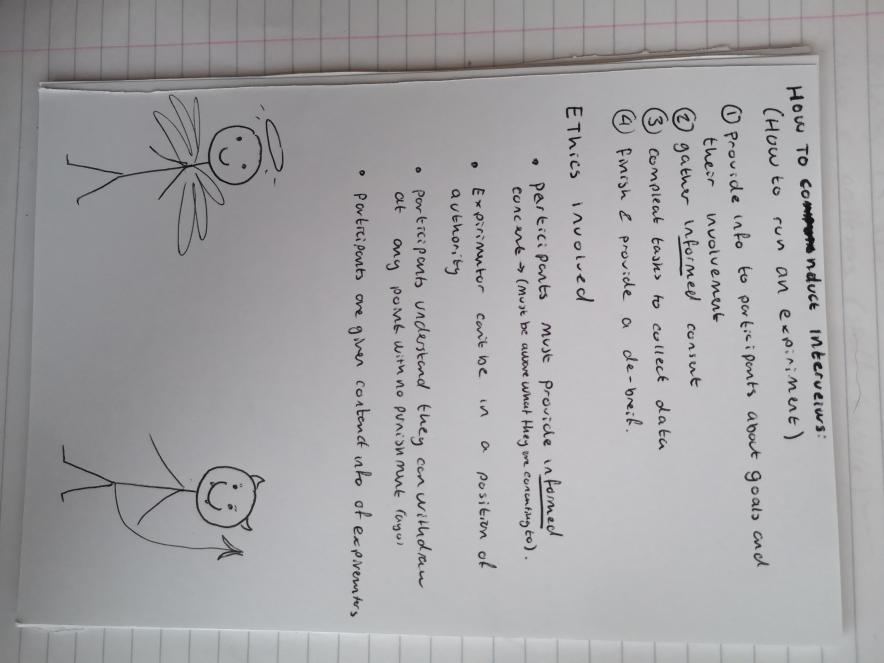 How To conduct Interveiws:
(How to run an expiriment)
① Provide info to participants about goals and
their involvement
② gather informed consent
③ compleat tasks to collect data
④ finish & provide a de-breif.
Ethics involved
• participants must provide informed
concent → (Must be aware what they are concenting to).
• Expirimentor can't be in a position of
authority
• participants understand they can withdraw
at any point with no punishment
• participants are given contact info of expirementers